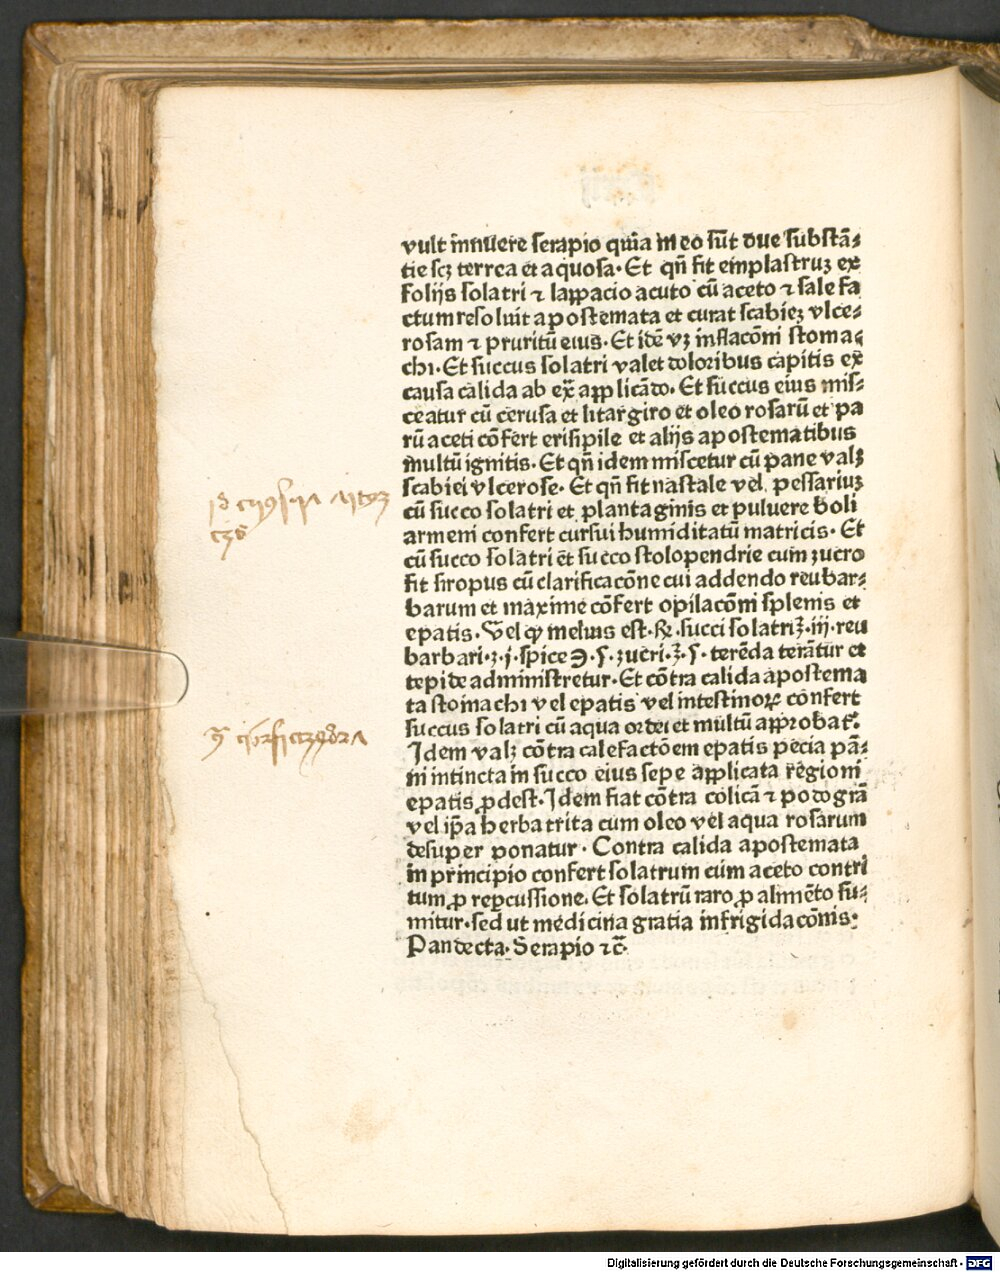 vult īnnuere serapio quia in eo sūt due substā⸗
tie scꝫ terrea et aquosa. Et qn̄ fit emplastruꝫ ex
folijs solatri ⁊ lappacio acuto cū aceto ⁊ sale fa
ctum resoluit apostemata et curat scabieꝫ vlce⸗
rosam ⁊ pruritū eius. Et idē vꝫ inflacōni stoma⸗
chi. Et succus solatri valet doloribus capitis ex
causa calida ab ex̄ applicādo. Et succus eius mis⸗
ceatur cū cerusa et litargiro et oleo rosarū et pa
rū aceti cōfert erisipile et alijs apostematibus
multū ignitis. Et qn̄ idem miscetur cū pane valꝫ
scabiei vlcerose. Et qn̄ fit nastale vel pessariuꝫ
cū succo solatri et plantaginis et puluere boli
armeni confert cursui humiditatū matricis. Et
cū succo solatri et succo stolopendrie cum zucro
fit siropus cū clarificacōne cui addendo reubar⸗
barum et maxime cōfert opilacōni splenis et
epatis. Vel ꝙ melius est. ℞. succi solatri ℥. iij. reu
barbari. ʒ. j. spice ℈. ſ. zucri. ℥. ſ. terēda terātur et
tepide administretur. Et cōtra calida apostema
ta stomachi vel epatis vel intestinoꝝ confert
succus solatri cū aqua ordei et multū approbat᷒.
Idem valꝫ cōtra calefactōem epatis pecia pā⸗
ni intincta in succo eius sepe applicata regioni
epatis ꝓdest. Idem fiat cōtra colicā ⁊ podogrā
vel ip̄a herba trita cum oleo vel aqua rosarum
desuper ponatur. Contra calida apostemata
in principio confert solatrum cum aceto contri
tum ꝓ reꝑcussione. Et solatrū raro ꝓ alimēto su⸗
mitur. sed ut medicina gratia infrigidacōnis.
Pandecta. Serapio ⁊c̄.
Digitalisierung gefördert durch die Deutsche Forschungsgemeinschaft - DFG